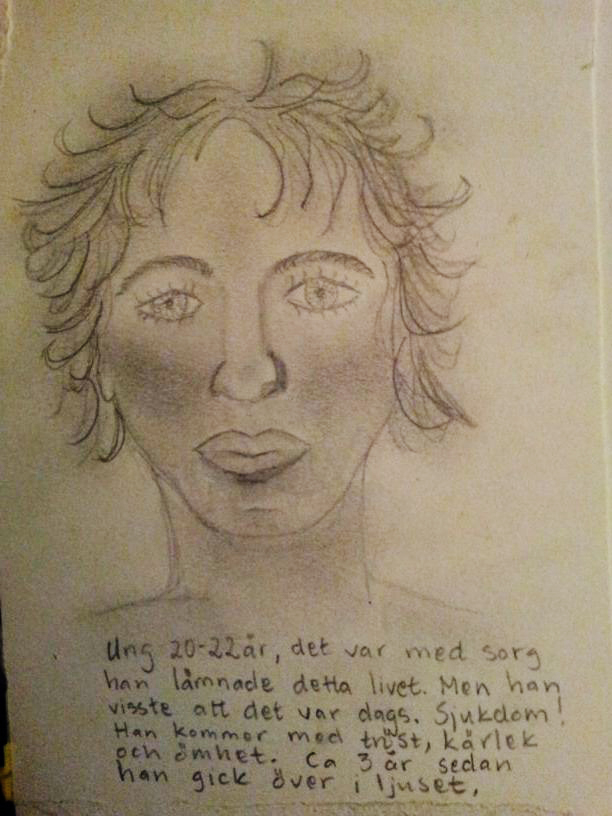 Ung 20-22år, det var med sorg
han lämnade detta livet. Men han
visste att det var dags. Sjukdom!
Han kommer med tröst, kärlek
och ömhet. Ca 3 år sedan
han gick över i ljuset.